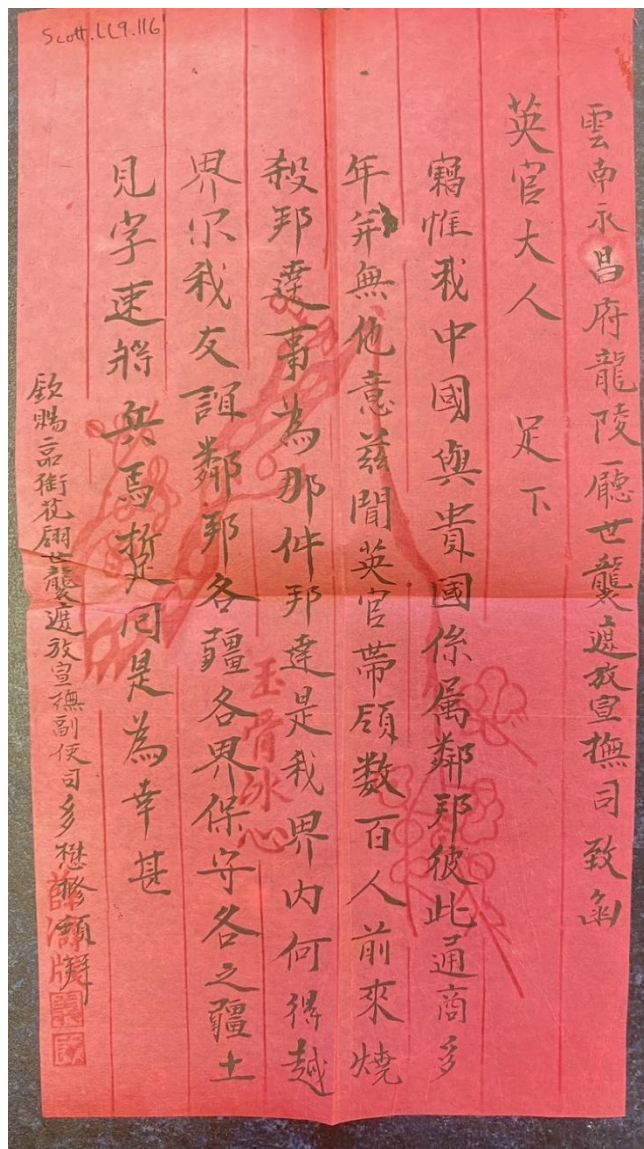 Scott.LL9.116
雲南永昌府龍陵廳世襲遮放宣撫司致函
英官大人 足下
竊惟我中國與貴國係属鄰邦彼此通商多
年并無他意茲聞英官帶領数百人前來燒
殺邦達事為那件邦達是我界内何得越
界尔我友誼鄰邦各疆各界保守各之疆土
見字速將兵馬掣回是為幸甚
欽賜二品銜花翎世襲遮放宣撫副使司多懋修頓拜
玉骨冰心